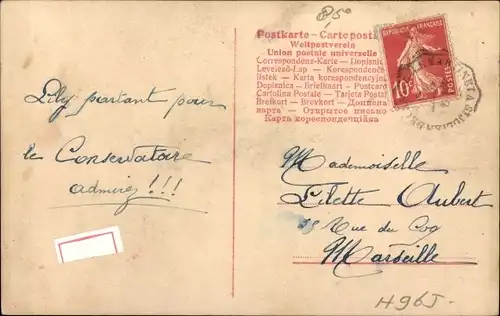 8,50
Postkarte - Carte postale
Weltpostverein
Union postale universelle
Correspondenz-Karte - Dopisnice
Levelező-Lap - Korespondencni
listek - Karta korespondencyjna
Dopisnica - Brielkaart - Postcard
Cartolina Postale - Tarjeta Postal
Brefkort - Brevkort - Дописна
карта - Открытое письмо
Карта кореспонденційна
REPUBLIQUE FRANÇAISE
POSTES
10c
Lily partant pour
le Conservatoire
admirez !!!
Mademoiselle
Lilette Aubert
Rue du Coq
Marseille
H965